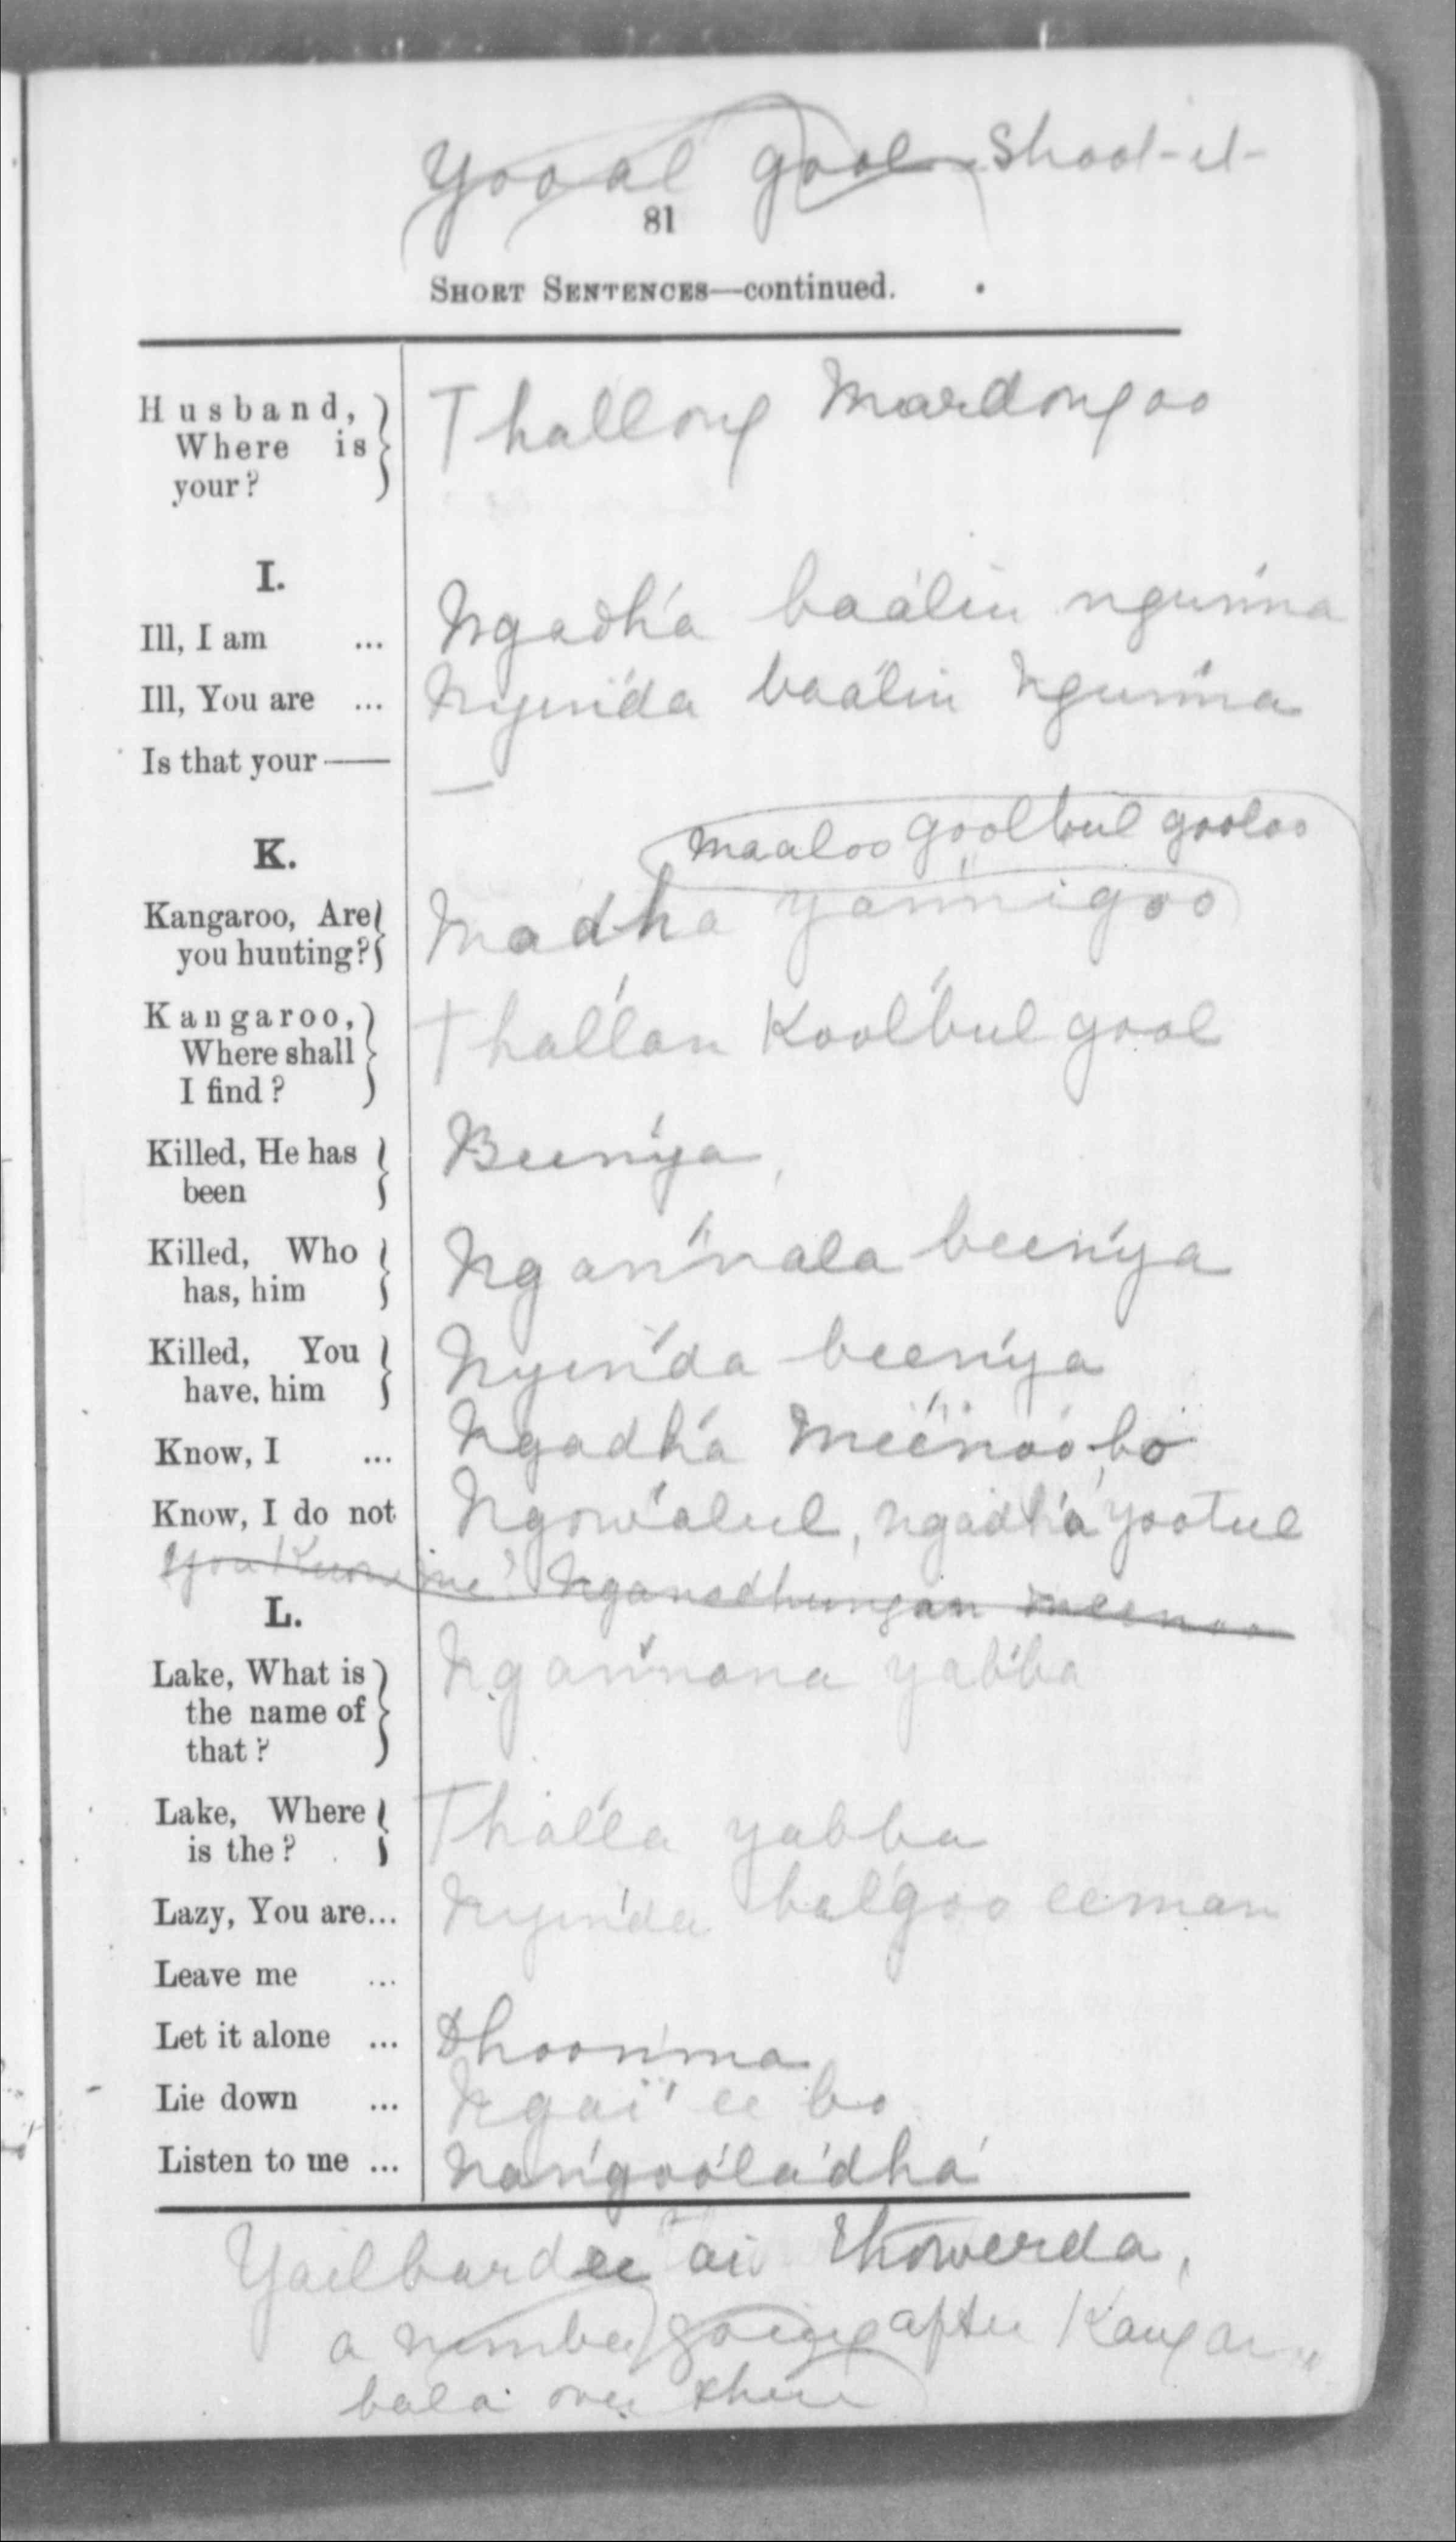 Yooal gool Shoot-it-
81
SHORT SENTENCES—continued.
Husband, Where is your? Thallong Mardongoo
I.
Ill, I am ... Ngadha' baa'lin ngurr'na
Ill, You are ... Nyin'da baa'lin Ngurr'na
Is that your —— —
maaloo goolbul gooloo
K.
Kangaroo, Are you hunting? Madha yannigoo
Kangaroo, Where shall I find? Thal'lan Kool'bul gool
Killed, He has been Been'ya
Killed, Who has, him Ngan'nala been'ya
Killed, You have, him Nyin'da been'ya
Know, I ... Ngadha' Meenoo bo
Know, I do not Ngow'alul, ngadha' yootul
You Know me Nganadhungan meenoo
L.
Lake, What is the name of that? Ngan'nana yab'ba
Lake, Where is the? Thal'la yabba
Lazy, You are... Nyin'da bal'goo eeman
Leave me ...
Let it alone ... Dhoon'ma
Lie down ... Ngai' ee bo
Listen to me ... Nan'goo'la'dha'
Yailburdee ai thowerda,
a number going after Kangar
bala over there